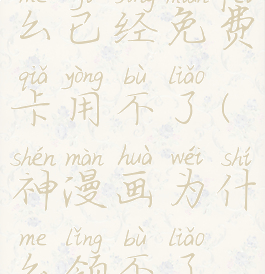 me yǐ jīng miǎn fèi
么已经免费
qiǎ yòng bù liǎo
卡用不了(
shén màn huà wéi shí
神漫画为什
me lǐng bù liǎo
么领不了